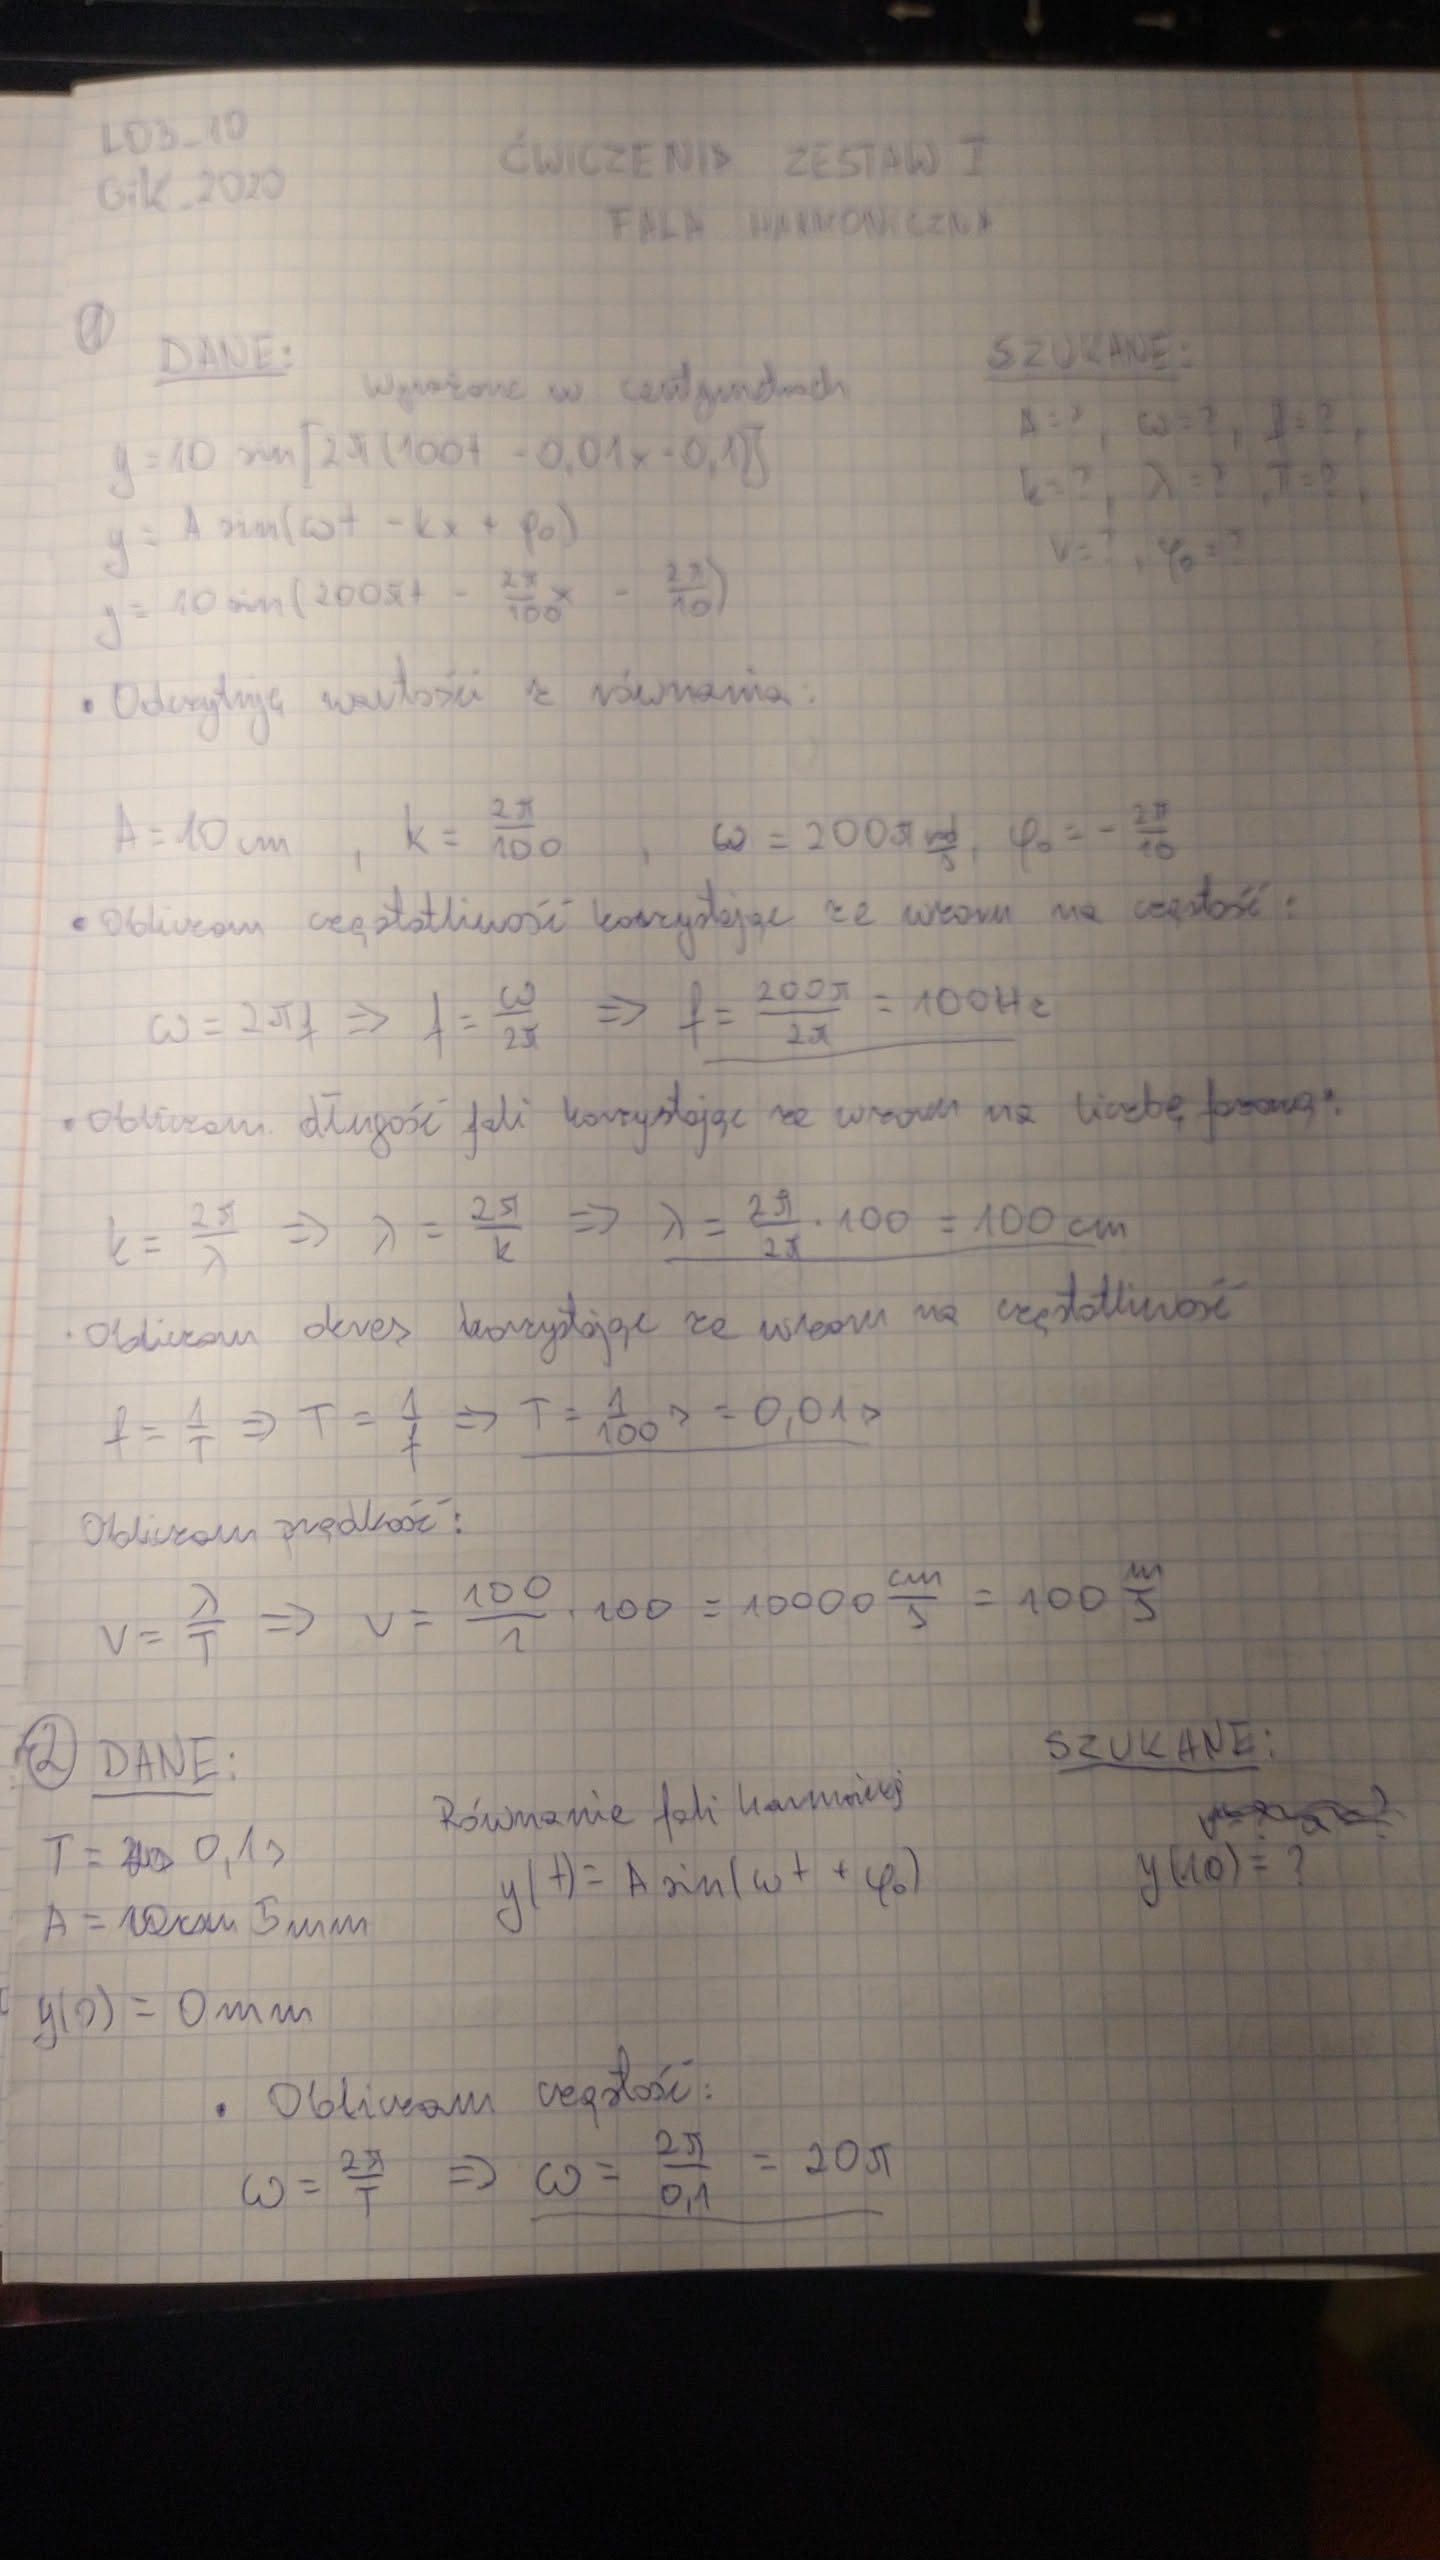 L03_10
GiK_2020
ĆWICZENIA ZESTAW I
FALA HARMONICZNA
①
DANE:
SZUKANE:
Wyrażone w centymetrach
y = 10 sin[2π(100t - 0,01x - 0,1)]
A = ?, ω = ?, f = ?,
y = A sin(ωt - kx + φ₀)
k = ?, λ = ?, T = ?,
y = 10 sin(200πt - 2π/100 x - 2π/10)
v = ?, φ₀ = ?
• Odczytuję wartości z równania:
A = 10 cm, k = 2π/100, ω = 200π rad/s, φ₀ = - 2π/10
• Obliczam częstotliwość korzystając ze wzoru na częstość:
ω = 2πf => f = ω/2π => f = 200π/2π = 100Hz
• Obliczam długość fali korzystając ze wzoru na liczbę falową:
k = 2π/λ => λ = 2π/k => λ = 2π/2π · 100 = 100 cm
• Obliczam okres korzystając ze wzoru na częstotliwość
f = 1/T => T = 1/f => T = 1/100 s = 0,01 s
Obliczam prędkość:
v = λ/T => v = 100/1 · 100 = 10000 cm/s = 100 m/s
② DANE:
SZUKANE:
Równanie fali harmonicznej
T = 0,1 s
y(t) = A sin(ωt + φ₀)
y(10) = ?
A = 5 mm
y(0) = 0 mm
• Obliczam częstość:
ω = 2π/T => ω = 2π/0,1 = 20π